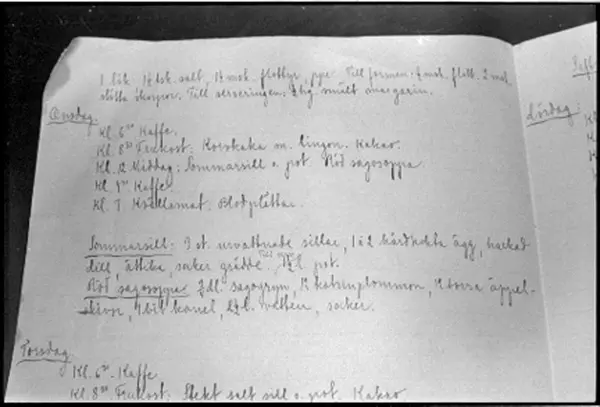 1 lök. 1½ tsk. salt, 1½ msk. flottyr, ppr. Till formen: ½ msk. flott. 2 msk.
stötta skorpor. Till serveringen: ½ hg. smält margarin.
Onsdag:
Kl. 6 Kaffe.
Kl. 8³⁰ Frukost: Korvkaka m. lingon. Kakao.
Kl. 12 Middag: Sommarsill o. pot. Röd sagosoppa.
Kl. Kaffe
Kl. 7 Kvällsmat. Blodplättar.
Sommarsill: 3 st. urvattnade sillar, 1 à 2 hårdkokta ägg, hackad
dill, ättika, socker grädde. Till l. pot.
Röd sagosoppa: dl. sagogryn, 12 katrinplommon, 12 torra äppel-
skivor, 1 bit kanel, l. vatten, socker.
Torsdag
Kl. 6 Kaffe
Kl. 8³⁰ Frukost: Stekt salt sill o. pot. Kakao
Lördag: